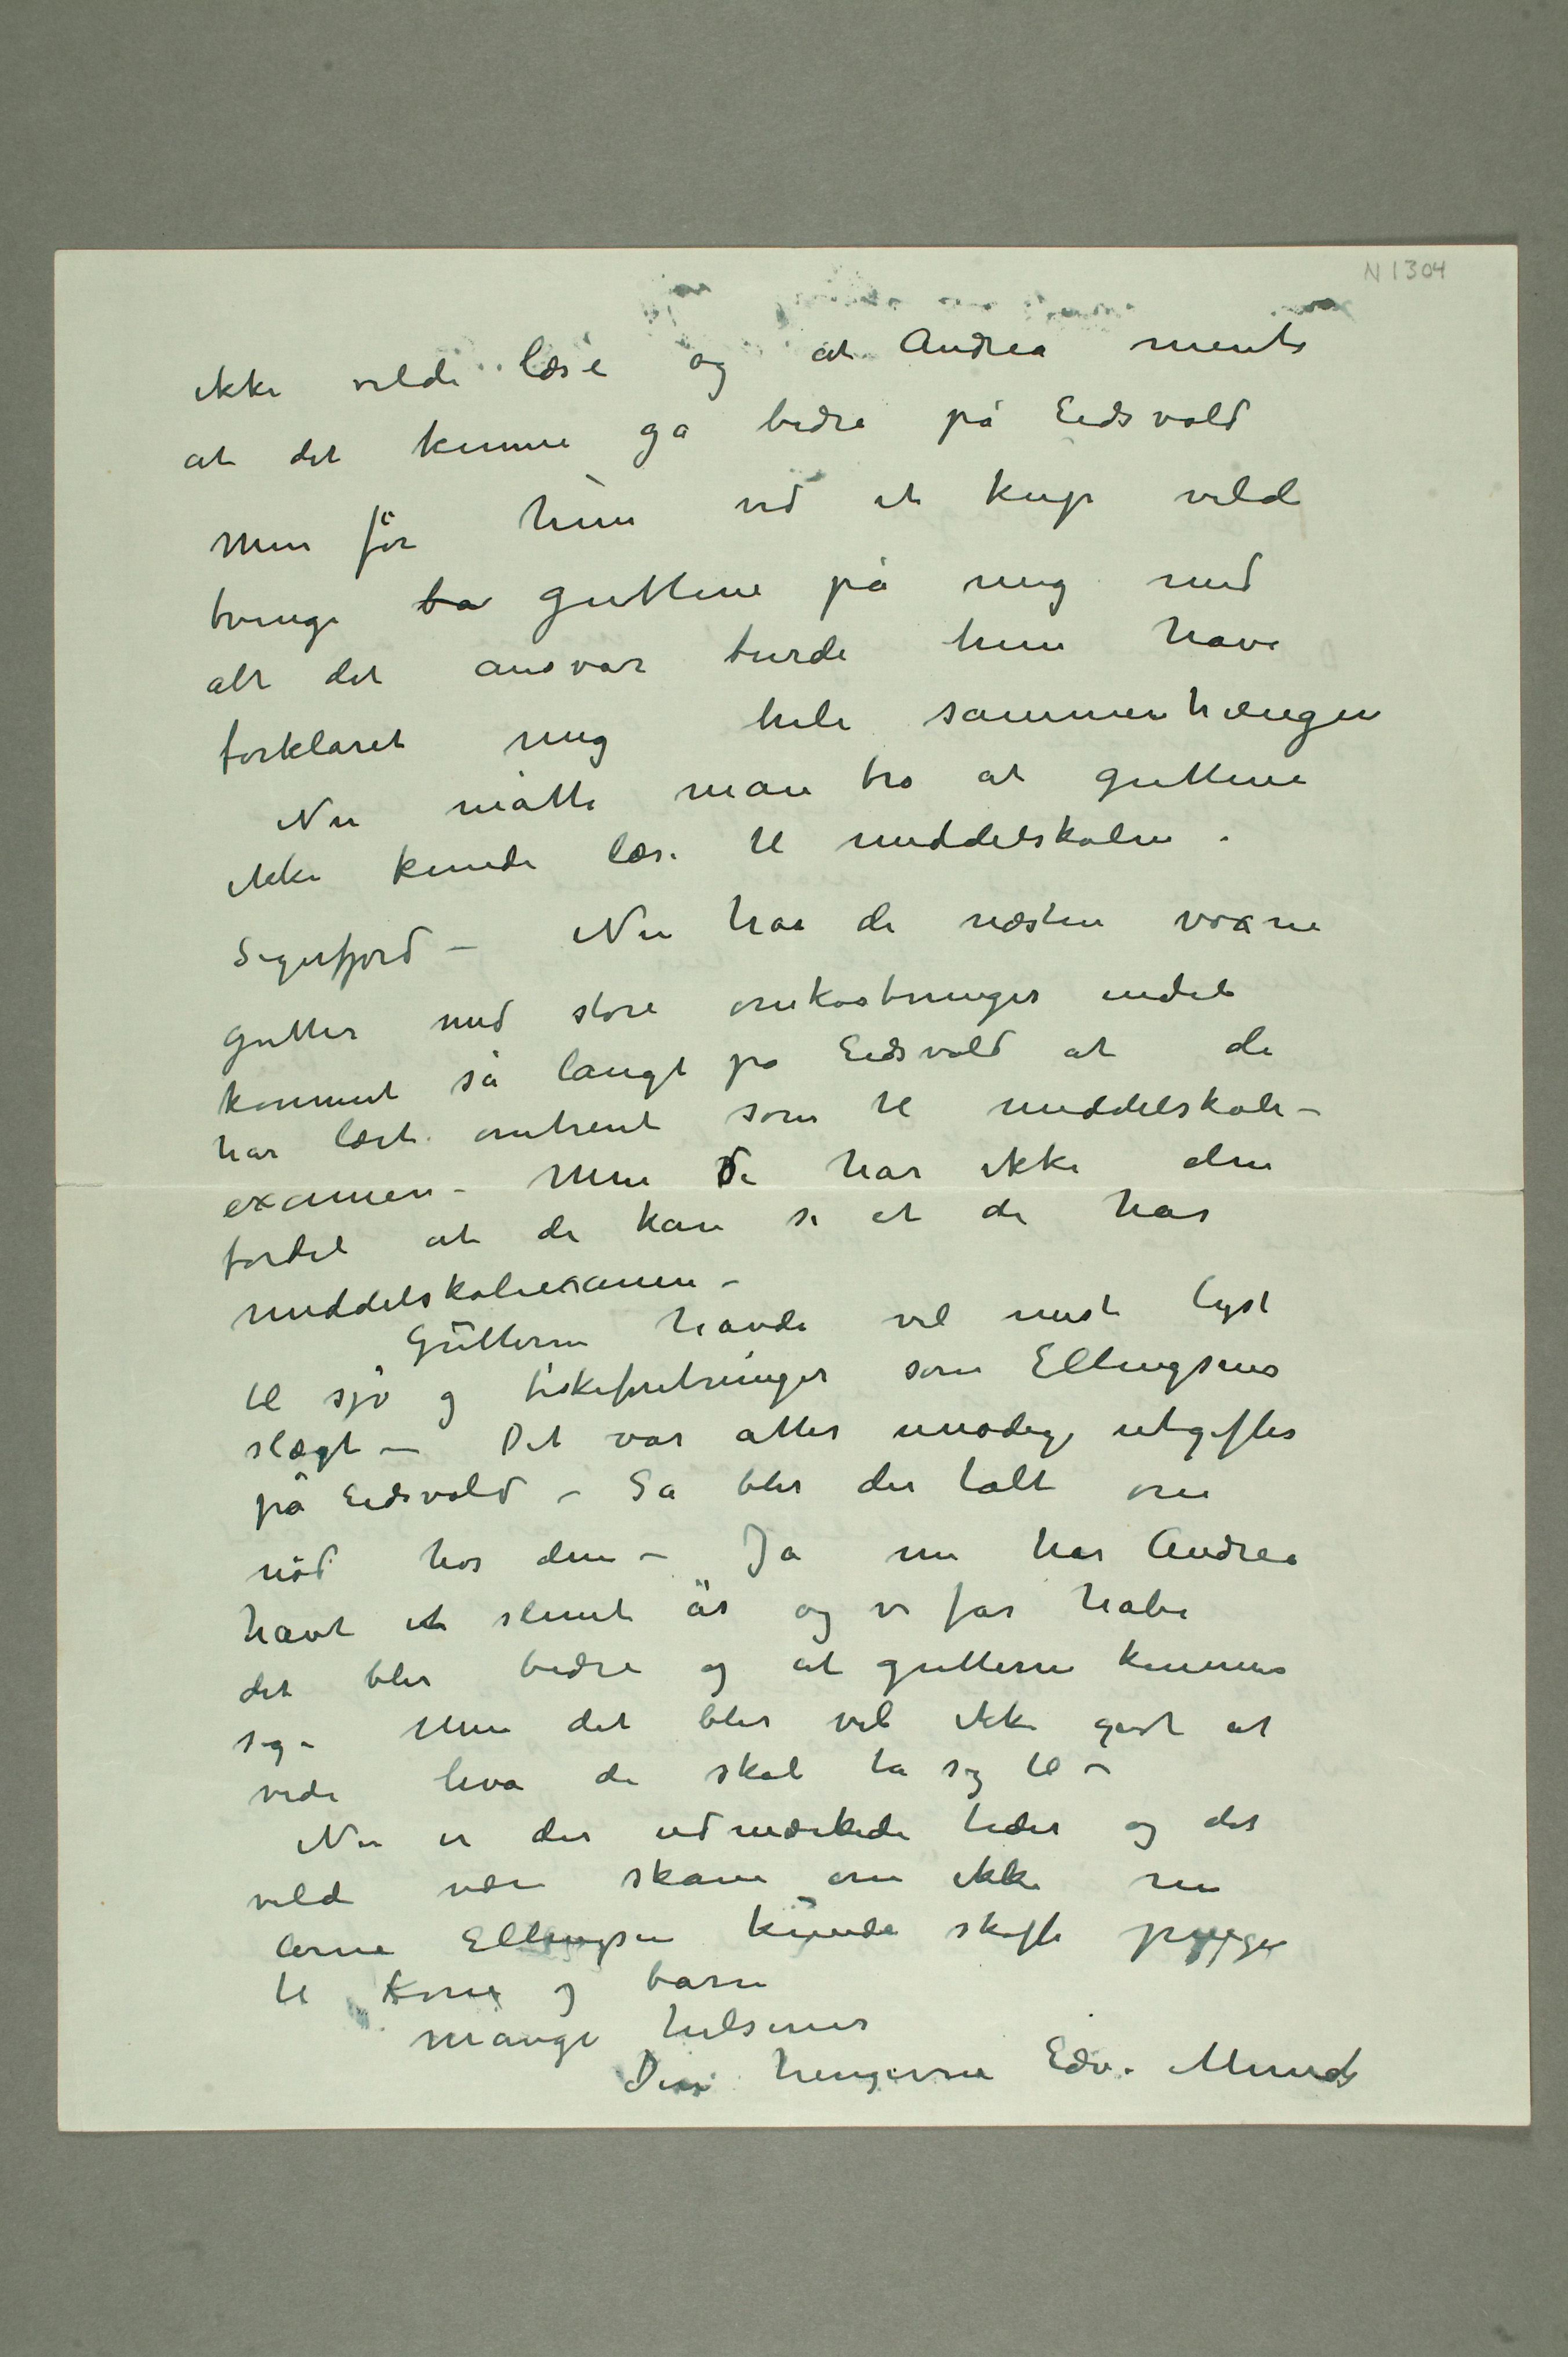 N 1304
ikke vilde læse og at Andrea mente
at det kunne gå bedre på Eidsvold
Men før hun ved et kup vilde
tvinge ta guttene på mig med
alt det ansvar burde hun have
forklaret mig hele sammenhængen
Nu måtte man tro at guttene
ikke kunde læse til middelskolen.
Sigerfjord – Nu har de næsten voxne
gutter med store omkostninger endel
kommet så langt på Eidsvold at de
har lært omtrent som til middelskole-
examen – Men de har ikke den
fordel at de kan si at de har
middelskolexamen –
Gutterne havde vel mest lyst
til sjø og fiskeforetninger som Ellingsens
slægt – Det var atter unødige utgifter
på Eidsvold – Så blir der talt om
nød hos dem – Ja nu har Andrea
havt et slemt år og vi får håbe
det blir bedre og at gutterne kommer
sig – Men det blir vel ikke godt at
vide hva de skal ta sig til –
Nu er der udmærkede tider og det
vilde være skam om ikke nu
Arne Ellingsen kunde skaffe penge
til Kone og barn
Mange hilsener
Din hengivne Edv. Munch